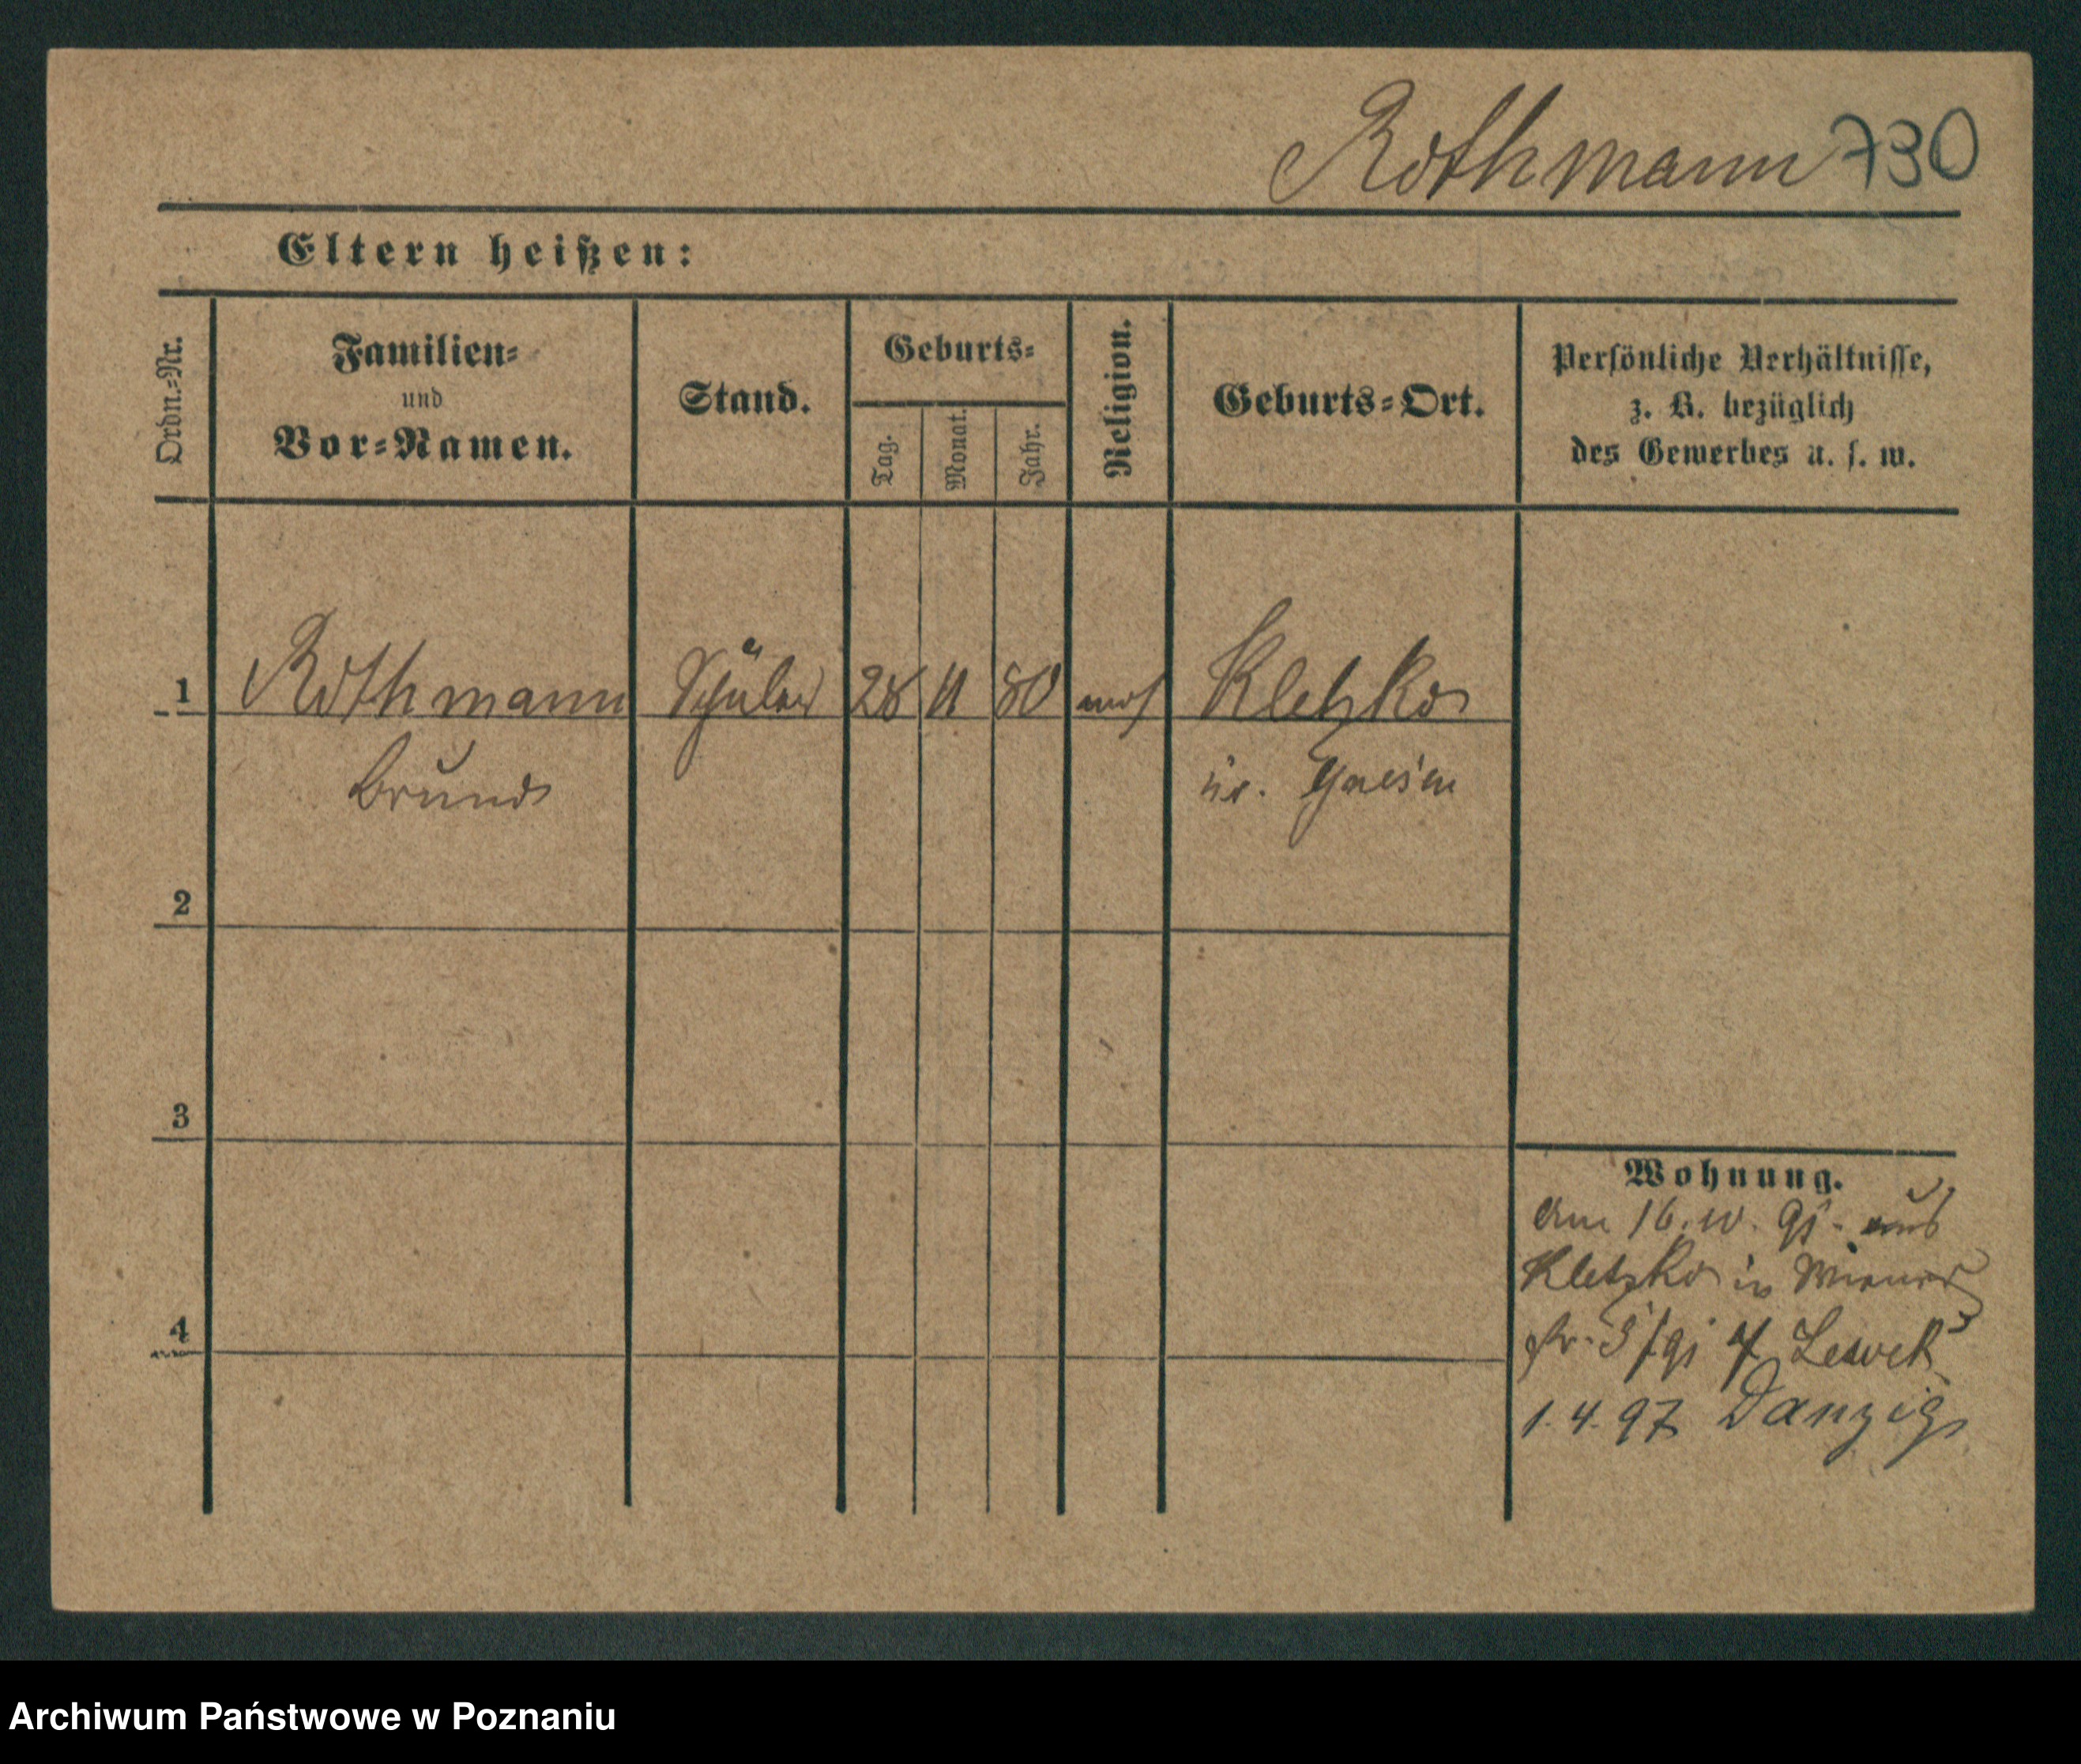 Rothmann 730
Eltern heißen:
Ordn.-Nr.
Familien-
und
Vor-Namen.
Stand.
Geburts-
Tag.
Monat.
Jahr.
Religion.
Geburts-Ort.
Persönliche Verhältnisse,
z. B. bezüglich
des Gewerbes u. s. w.
1 Rothmann Schüler 28 11 80 mos Kletzko
Bruno Kr. Gnesen
2
3
4
Wohnung.
Am 16. 10. aus
Kletzko in Wiener
str. 5 Lewek
1. 4. 97 Danzig
Archiwum Państwowe w Poznaniu